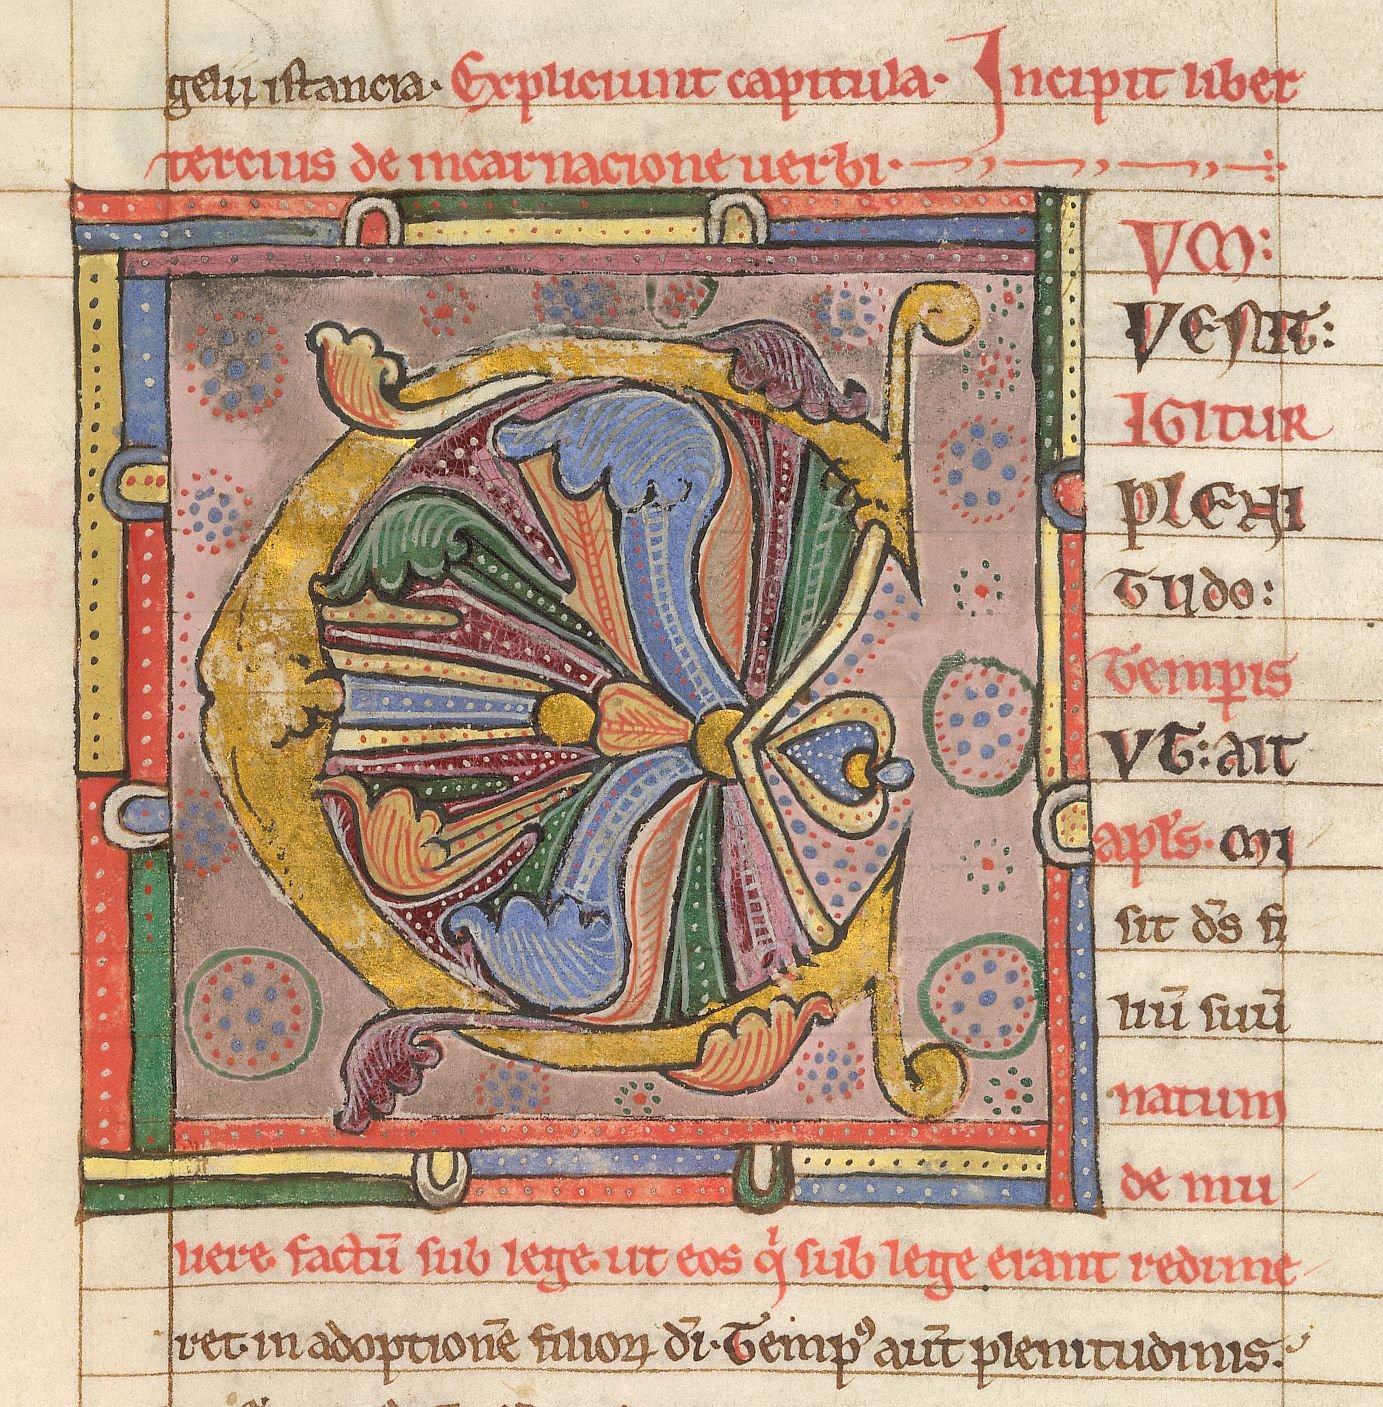 gelii istancia. Expliciunt capitula. Incipit liber
tercius de incarnacione uerbi.
C
VM:
VENIT:
IGITUR
PLENI
TUdo:
Temp̲is
VT: ait
ap̅l̅s. Mi
sit d̅s fi
liu̅ suu̅
natum
de mu
liere. factu̅ sub lege. ut eos q̇ sub lege erant redime
ret. in adoptione̅ filioꝝ d̅i. Tempꝰ au̅t plenitudinis.